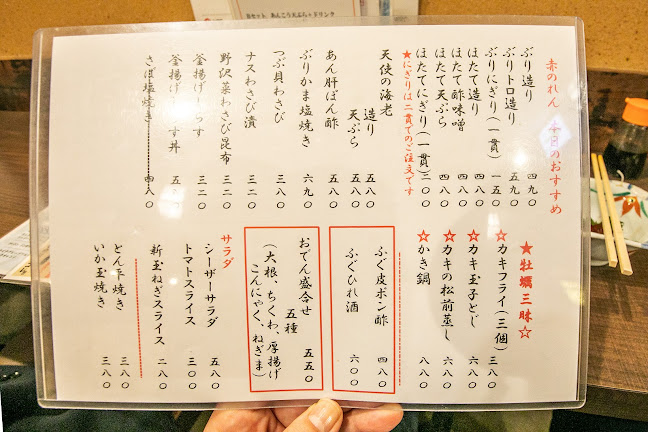 Bセット、あんこう天ぷら+ドリンク
赤のれん 今日のおすすめ
ぶり造り 四九〇
ぶりトロ造り 五九〇
ぶりにぎり(一貫) 一五〇
ほたて造り 四八〇
ほたて酢味噌 四八〇
ほたて天ぷら 四八〇
ほたてにぎり(一貫)二〇〇
★にぎりは二貫でのご注文です
天使の海老
造り 五八〇
天ぷら 五八〇
あん肝ぽん酢 五八〇
ぶりかま塩焼き 六九〇
つぶ貝わさび 三八〇
ナスわさび漬 三二〇
野沢菜わさび昆布 三二〇
釜揚げしらす 三二〇
釜揚げしらす丼 五八〇
さば塩焼き 四八〇
★牡蠣三昧☆
☆カキフライ(三個) 三八〇
☆カキ玉子とじ 六八〇
☆カキの松前蒸し 六八〇
☆かき鍋 八八〇
ふぐ皮ポン酢 四八〇
ふぐひれ酒 六〇〇
おでん盛合せ
五種 五五〇
(大根、ちくわ、厚揚げ
こんにゃく、ねぎま)
サラダ
シーザーサラダ 五八〇
トマトスライス 三〇〇
新玉ねぎスライス 二八〇
とん平焼き 三八〇
いか玉焼き 三八〇